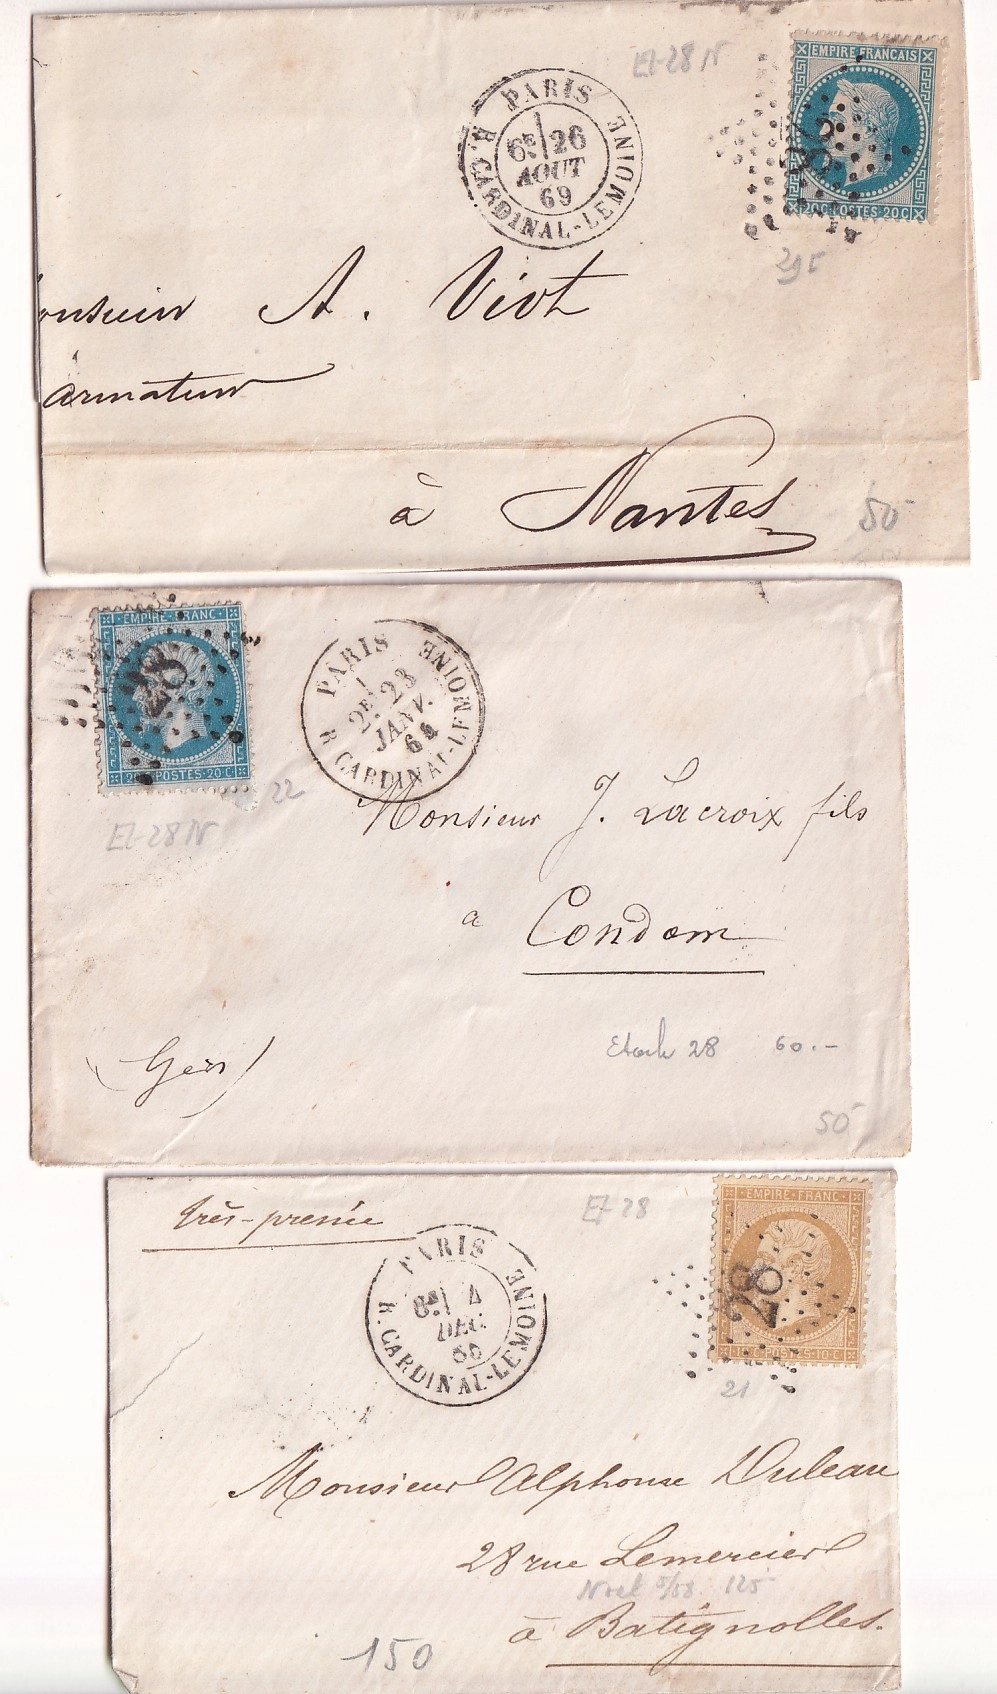 Et-28 N
PARIS
R. CARDINAL-LEMOINE
6E 26
AOUT
69
EMPIRE FRANCAIS
28
20C POSTES 20C
onsieur A. Viot
armateur
à Nantes
50-
EMPIRE FRANC
28
20 C POSTES 20 C
PARIS
R CARDINAL-LEMOINE
2E 23
JANV.
64
22
Et-28 N
Monsieur J. Lacroix fils
a Condom
(Gers)
Etoile 28 60.-
50-
très-pressée
Et 28
PARIS
R. CARDINAL-LEMOINE
6E 4
DEC.
66
EMPIRE FRANC
28
POSTES 10 C
21
Monsieur Alphonse Duleau
28 rue Lemercier
125
à Batignolles.
150